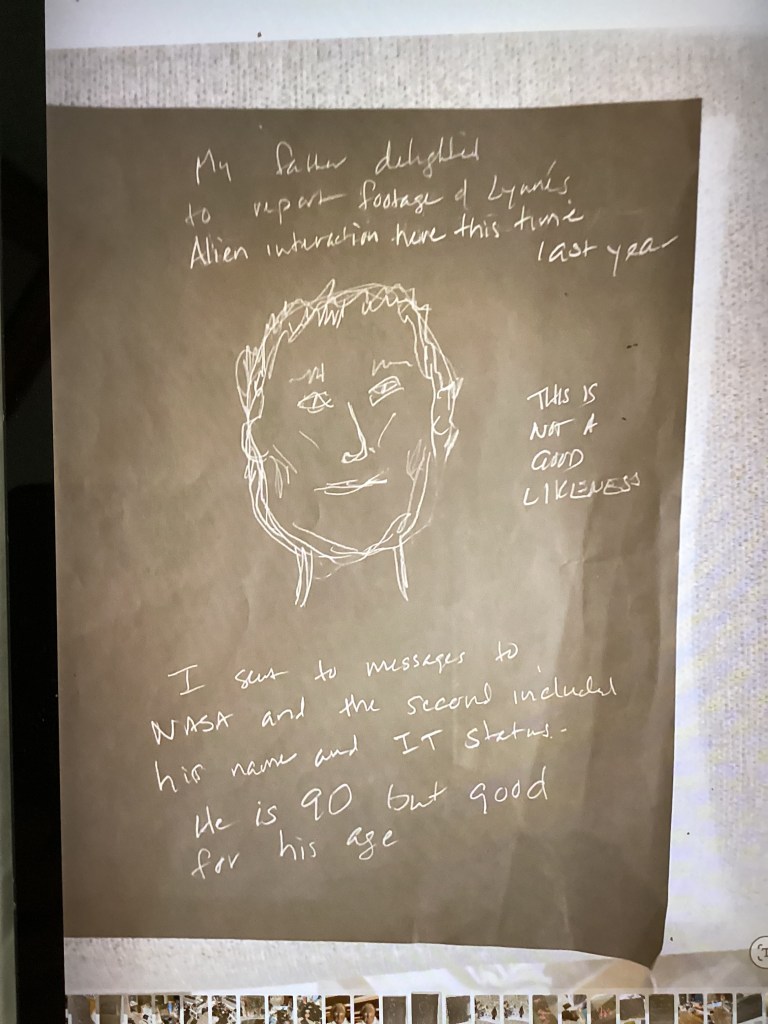 My father delighted
to report footage of Lyanne's
Alien interaction here this time
last year
THIS IS
NOT A
GOOD
LIKENESS
I sent to messages to
NASA and the second included
his name and IT status.
He is 90 but good
for his age